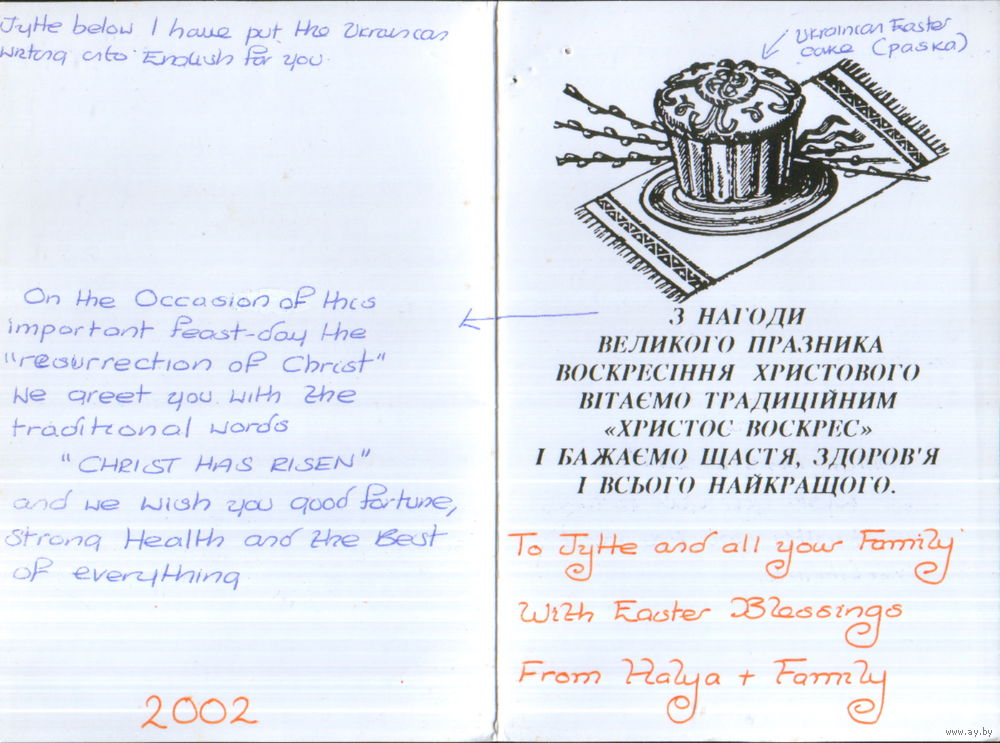 Jytte below I have put the Ukrainian
writing into English for you.
On the Occasion of this
important feast-day the
"resurrection of Christ"
we greet you with the
traditional words
"CHRIST HAS RISEN"
and we wish you good fortune,
strong Health and the Best
of everything
2002
Ukrainian Easter
cake (paska)
З НАГОДИ
ВЕЛИКОГО ПРАЗНИКА
ВОСКРЕСІННЯ ХРИСТОВОГО
ВІТАЄМО ТРАДИЦІЙНИМ
«ХРИСТОС ВОСКРЕС»
І БАЖАЄМО ЩАСТЯ, ЗДОРОВ'Я
І ВСЬОГО НАЙКРАЩОГО.
To Jytte and all your Family
With Easter Blessings
From Halya + Family
www.ay.by